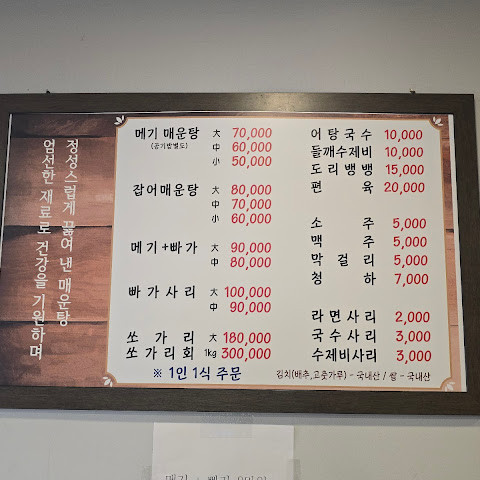 정성스럽게 끓여 낸 매운탕
엄선한 재료로 건강을 기원하며
메기 매운탕 大 70,000
(공기밥별도) 中 60,000
小 50,000
잡어매운탕 大 80,000
中 70,000
小 60,000
메기+빠가 大 90,000
中 80,000
빠가사리 大 100,000
中 90,000
쏘가리 大 180,000
쏘가리회 1kg 300,000
※ 1인 1식 주문
어탕국수 10,000
들깨수제비 10,000
도리뱅뱅 15,000
편육 20,000
소주 5,000
맥주 5,000
막걸리 5,000
청하 7,000
라면사리 2,000
국수사리 3,000
수제비사리 3,000
김치(배추,고춧가루) - 국내산 / 쌀 - 국내산